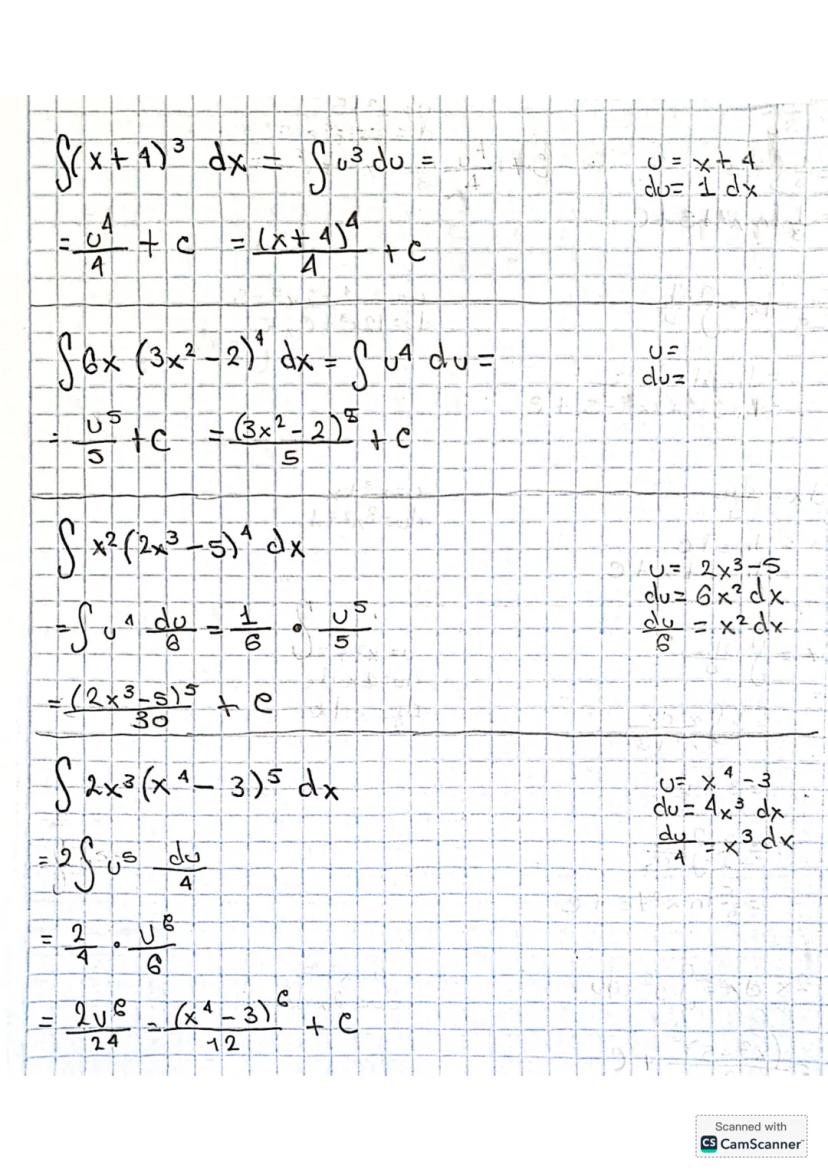 ∫(x+4)³ dx = ∫u³ du =
u = x+4
du= 1 dx
= u⁴/4 + c = (x+4)⁴/4 + c
∫6x (3x²-2)⁴ dx = ∫ u⁴ du =
u=
du=
= u⁵/5 + c = (3x²-2)⁵/5 + c
∫ x²(2x³-5)⁴ dx
u= 2x³-5
du= 6x² dx
du/6 = x² dx
= ∫ u⁴ du/6 = 1/6 • u⁵/5
= (2x³-5)⁵/30 + c
∫ 2x³(x⁴-3)⁵ dx
u= x⁴-3
du= 4x³ dx
du/4 = x³ dx
= 2∫ u⁵ du/4
= 2/4 • u⁶/6
= 2u⁶/24 = (x⁴-3)⁶/12 + c
Scanned with
CS CamScanner